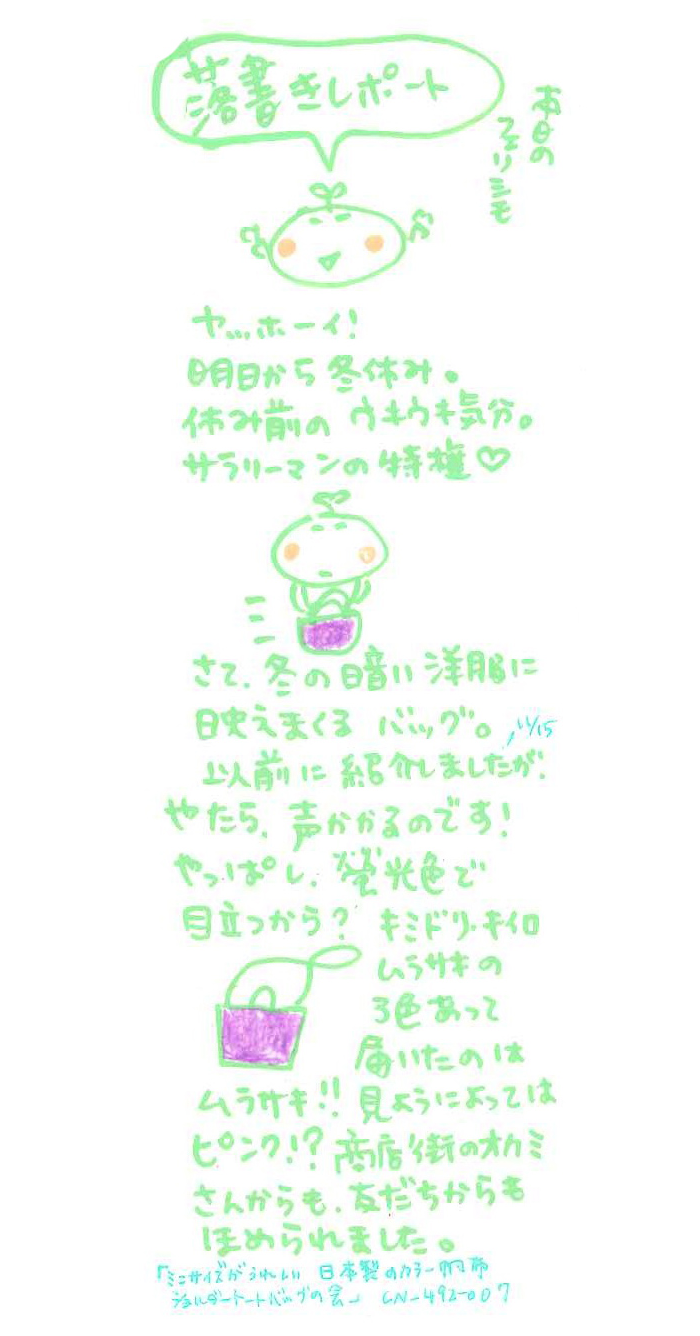 本日の
フェリシモ
落書きレポート
ヤッホーイ!
明日から冬休み。
休み前のウキウキ気分。
サラリーマンの特権♡
さて、冬の暗い洋服に
映えまくるバッグ。
11/15
以前に紹介しましたが、
やたら、声かかるのです!
やっぱし、蛍光色で
目立つから? キミドリ・キイロ
ムラサキの
3色あって
届いたのは
ムラサキ!! 見ようによっては
ピンク!? 商店街のオカミ
さんからも、友だちからも
ほめられました。
「ミニサイズがうれしい 日本製のカラー帆布
ショルダートートバッグの会」 CN-492-007